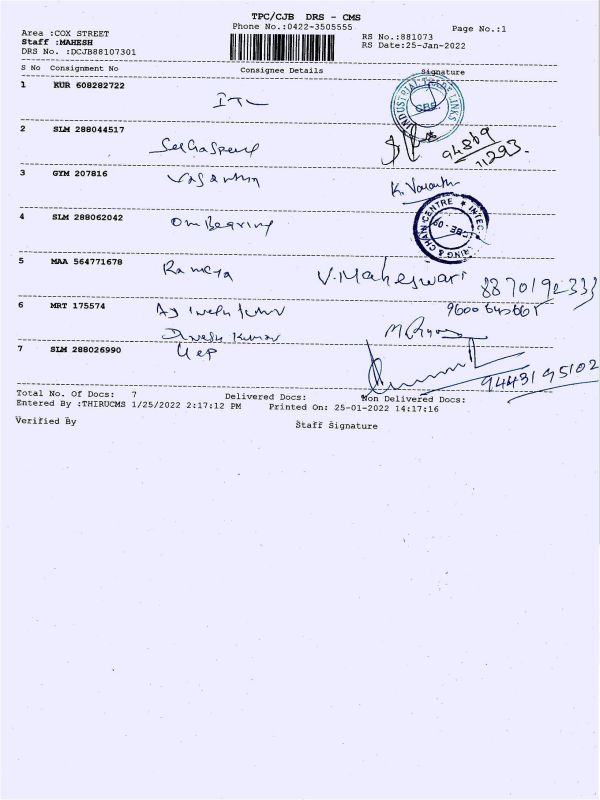 TPC/CJB DRS - CMS
Phone No.:0422-3505555
Page No.:1
Area :COX STREET
RS No.:881073
Staff :MAHESH
RS Date:25-Jan-2022
DRS No. :DCJB88107301
S No Consignment No Consignee Details Signature
1 KUR 608282722
ITL
INDUSTRIAL LINKS CBE
2 SLM 288044517
94869
11293
3 GYM 207816
Vasantha K. Vasanth
4 SLM 288062042
Om Bearing
BEARING & CHAIN CENTRE * INTEC CBE-09
5 MAA 564771678
Ramesa V. Maheswari 8870192333
6 MRT 175574
9600645665
Kumar
7 SLM 288026990
UeP
9443195102
Total No. Of Docs: 7 Delivered Docs: Non Delivered Docs:
Entered By :THIRUCMS 1/25/2022 2:17:12 PM Printed On: 25-01-2022 14:17:16
Verified By Staff Signature